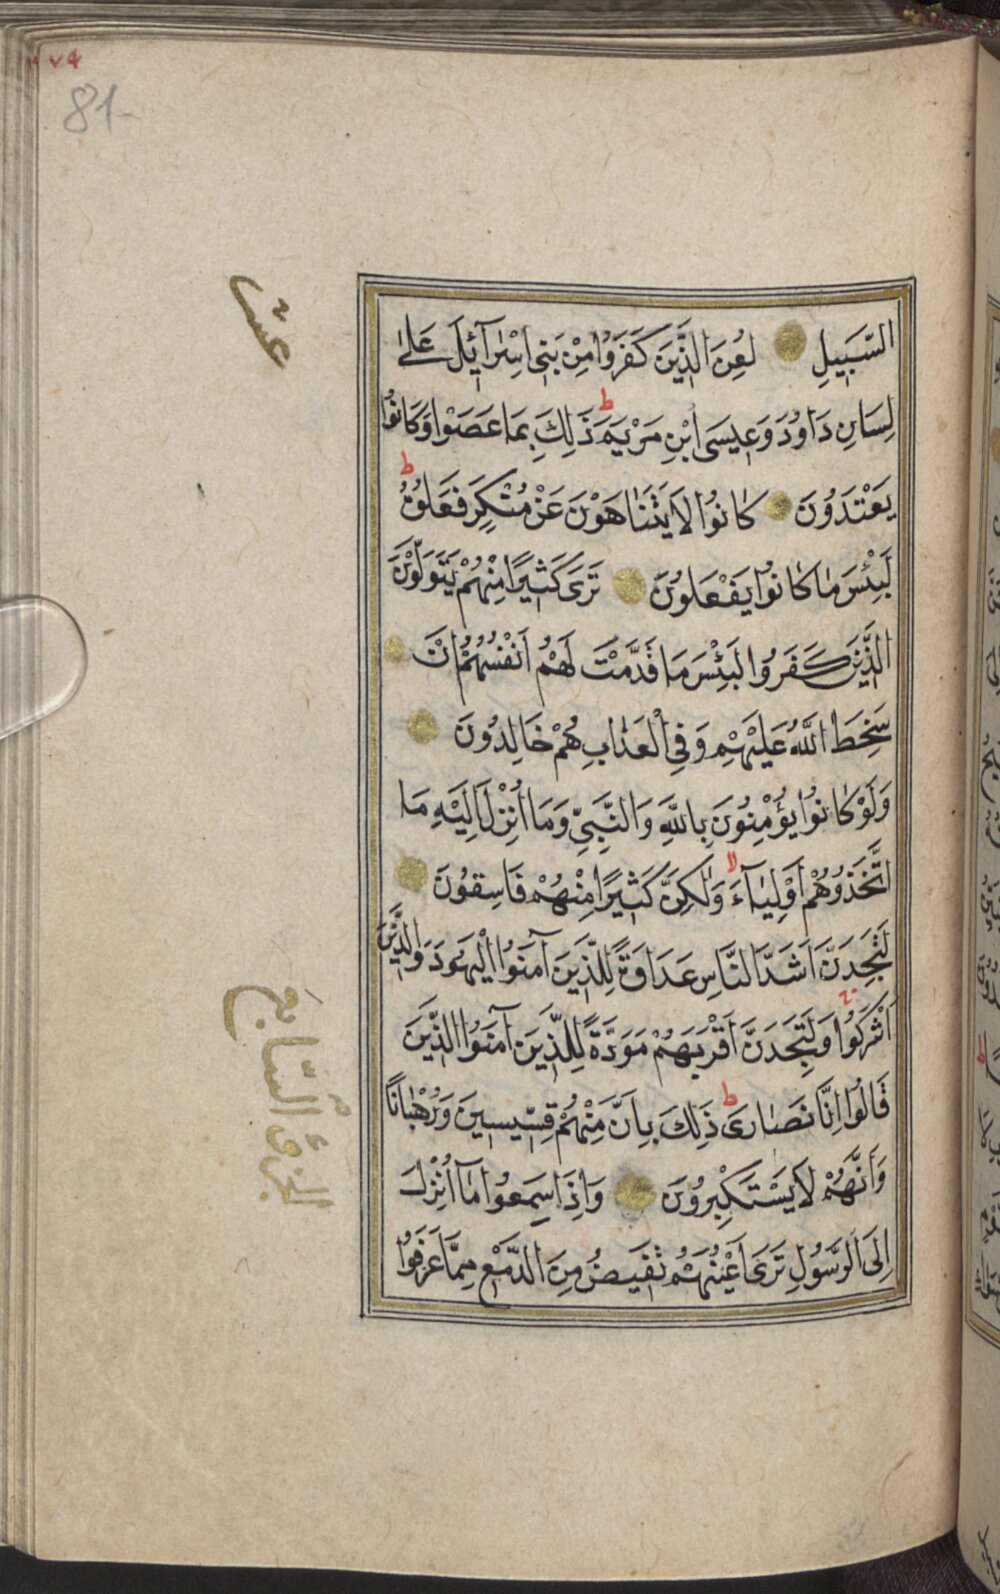 ٧٩
81
عشر
السَّبِيلِ لُعِنَ الَّذِينَ كَفَرُوا مِنْ بَنِي اِسْرَآئِلَ عَلىٰ
لِسَانِ دَاوُدَ وَعِيسَى ابْنِ مَرْيَمَ ط ذَلِكَ بِمَا عَصَوْا وَكَانُوا
يَعْتَدُونَ كَانُوا لَا يَتَنَاهَوْنَ عَنْ مُنْكَرٍ فَعَلُوهُ ط
لَبِئْسَ مَا كَانُوا يَفْعَلُونَ تَرَى كَثِيرًا مِنْهُمْ يَتَوَلَّوْنَ
الَّذِينَ كَفَرُوا لَبِئْسَ مَا قَدَّمَتْ لَهُمْ اَنْفُسُهُمْ اَنْ
سَخِطَ اللّٰهُ عَلَيْهِمْ وَفِي الْعَذَابِ هُمْ خَالِدُونَ
وَلَوْ كَانُوا يُؤْمِنُونَ بِاللّٰهِ وَالنَّبِيِّ وَمَا اُنْزِلَ اِلَيْهِ مَا
اتَّخَذُوهُمْ اَوْلِيَآءَ لا وَلٰكِنَّ كَثِيرًا مِنْهُمْ فَاسِقُونَ
لَتَجِدَنَّ اَشَدَّ النَّاسِ عَدَاوَةً لِلَّذِينَ آمَنُوا الْيَهُودَ وَالَّذِينَ
اَشْرَكُوا وَلَتَجِدَنَّ اَقْرَبَهُمْ مَوَدَّةً لِلَّذِينَ آمَنُوا الَّذِينَ
قَالُوا اِنَّا نَصَارَى ط ذَلِكَ بِاَنَّ مِنْهُمْ قِسِّيسِينَ وَرُهْبَانًا
وَاَنَّهُمْ لَا يَسْتَكْبِرُونَ وَاِذَا سَمِعُوا مَا اُنْزِلَ
اِلَى الرَّسُولِ تَرَى اَعْيُنَهُمْ تَفِيضُ مِنَ الدَّمْعِ مِمَّا عَرَفُوا
الجزؤ السّابع